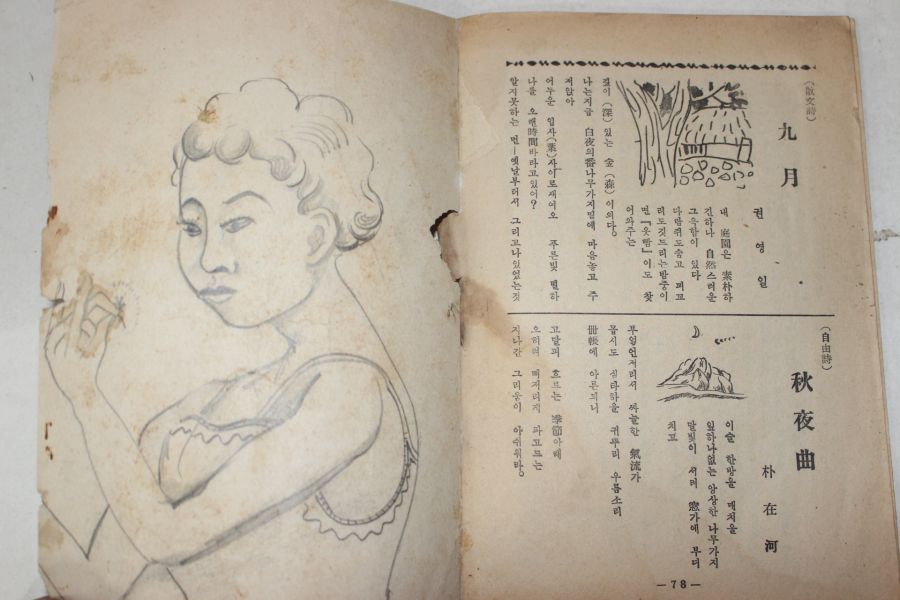 (散文詩)
九月
권영일
내 庭園은 素朴하
긴하나 自然스러운
그윽함이 있다
다람쥐도숨고 찌꼬
리도깃드리는밤중이
면『옷밤』이도 찾
어와주는
깊이(深) 있는 金(森)이의다。
나는지금 白夜의番나무가지밑에 마음놓고 주
저앉아
어두운 입사(葉)사이로새여오 푸른빛 별하
나를 오랜時間바라고있어?
알지못하는 먼―옛날부터서 그리고나있었는것
(自由詩)
秋夜曲
朴在河
이슬 한방울 매치을
잎하나없는 앙상한 나무가지
달빛이 서려 窓가에 부디
치고
부엉언저리서 싸늘한 氣流가
몹시도 심타하을 귀뚜리 우름소리
冊帳에 아른되니
고달피 흐르는 季節아래
오히려 뼈저리게 파고드는
지나간 그리움이 아쉬워라。
―78―